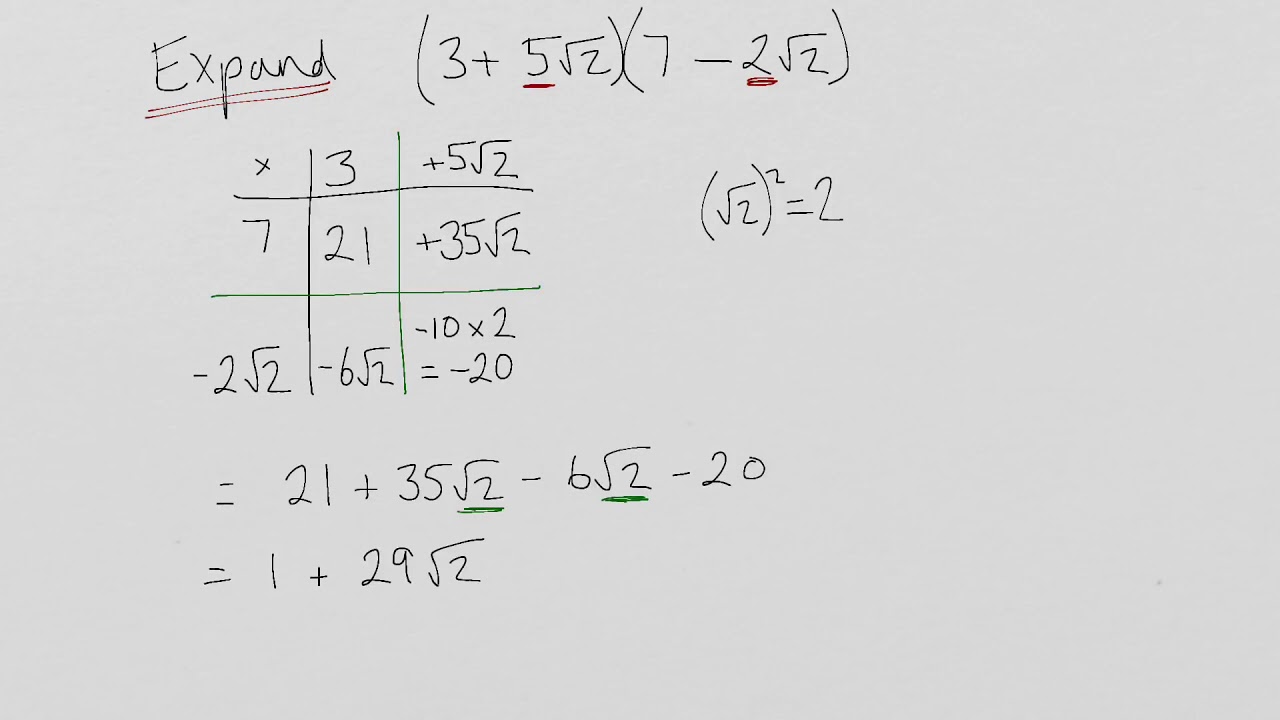 Expand (3 + 5√2)(7 - 2√2)
× 3 +5√2
7 21 +35√2
-10 × 2
-2√2 -6√2 = -20
(√2)² = 2
= 21 + 35√2 - 6√2 - 20
= 1 + 29√2